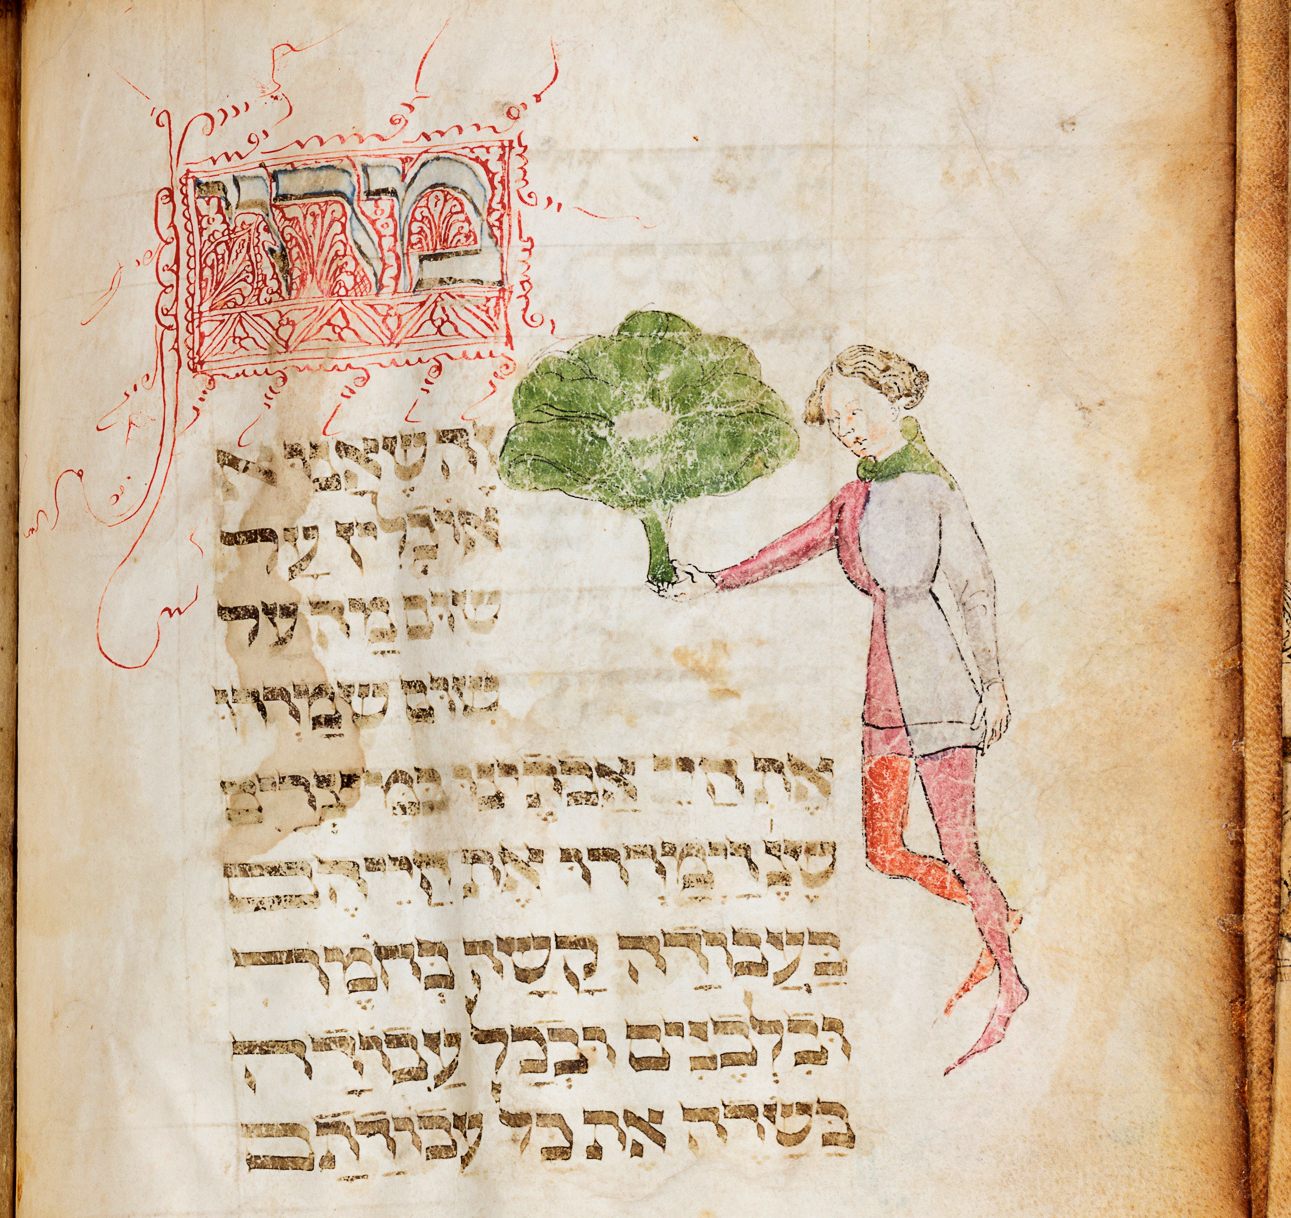 מרור
זה שאנו א
אוכלין על
שום מה על
שום שמררו
את חיי אבותינו במצרים
שנ וימררו את חייהם
בעבודה קשה בחמר
ובלבנים ובכל עבודה
בשדה את כל עבודתם